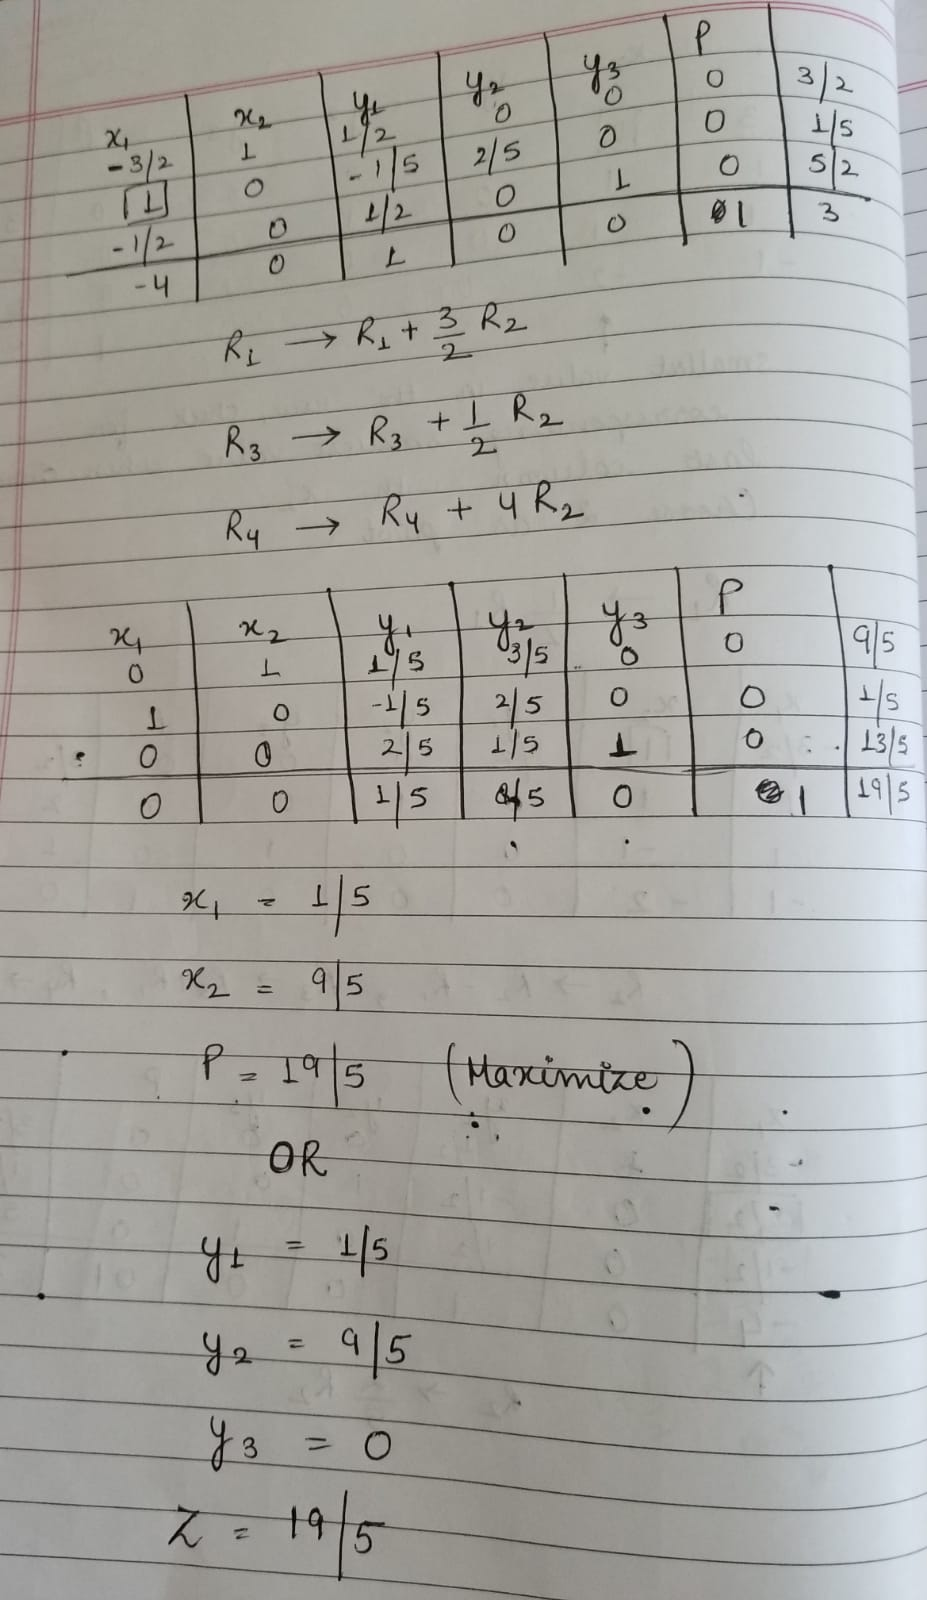 x₁ x₂ y₁ y₂ y₃ P
-3/2 1 1/2 0 0 0 3/2
1 0 -1/5 2/5 0 0 1/5
-1/2 0 1/2 0 1 0 5/2
-4 0 1 0 0 1 3
R₁ → R₁ + 3/2 R₂
R₃ → R₃ + 1/2 R₂
R₄ → R₄ + 4 R₂
x₁ x₂ y₁ y₂ y₃ P
0 1 1/5 3/5 0 0 9/5
1 0 -1/5 2/5 0 0 1/5
0 0 2/5 1/5 1 0 13/5
0 0 1/5 /5 0 1 19/5
x₁ = 1/5
x₂ = 9/5
P = 19/5 (Maximize)
OR
y₁ = 1/5
y₂ = 9/5
y₃ = 0
Z = 19/5